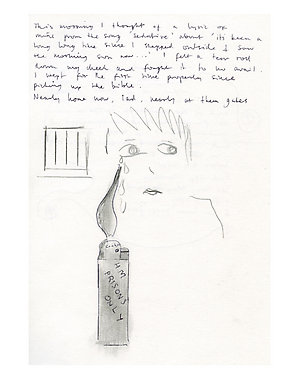 This morning I thought of a lyric of
mine from the song 'Sedative' about 'it's been a
long long time since I stepped outside & saw
the morning sun now...' I felt a tear roll
down my cheek and fought it to no avail.
I wept for the first time properly since
picking up the bible.
Nearly home now, lad, nearly at them gates
HM
PRISONS
ONLY